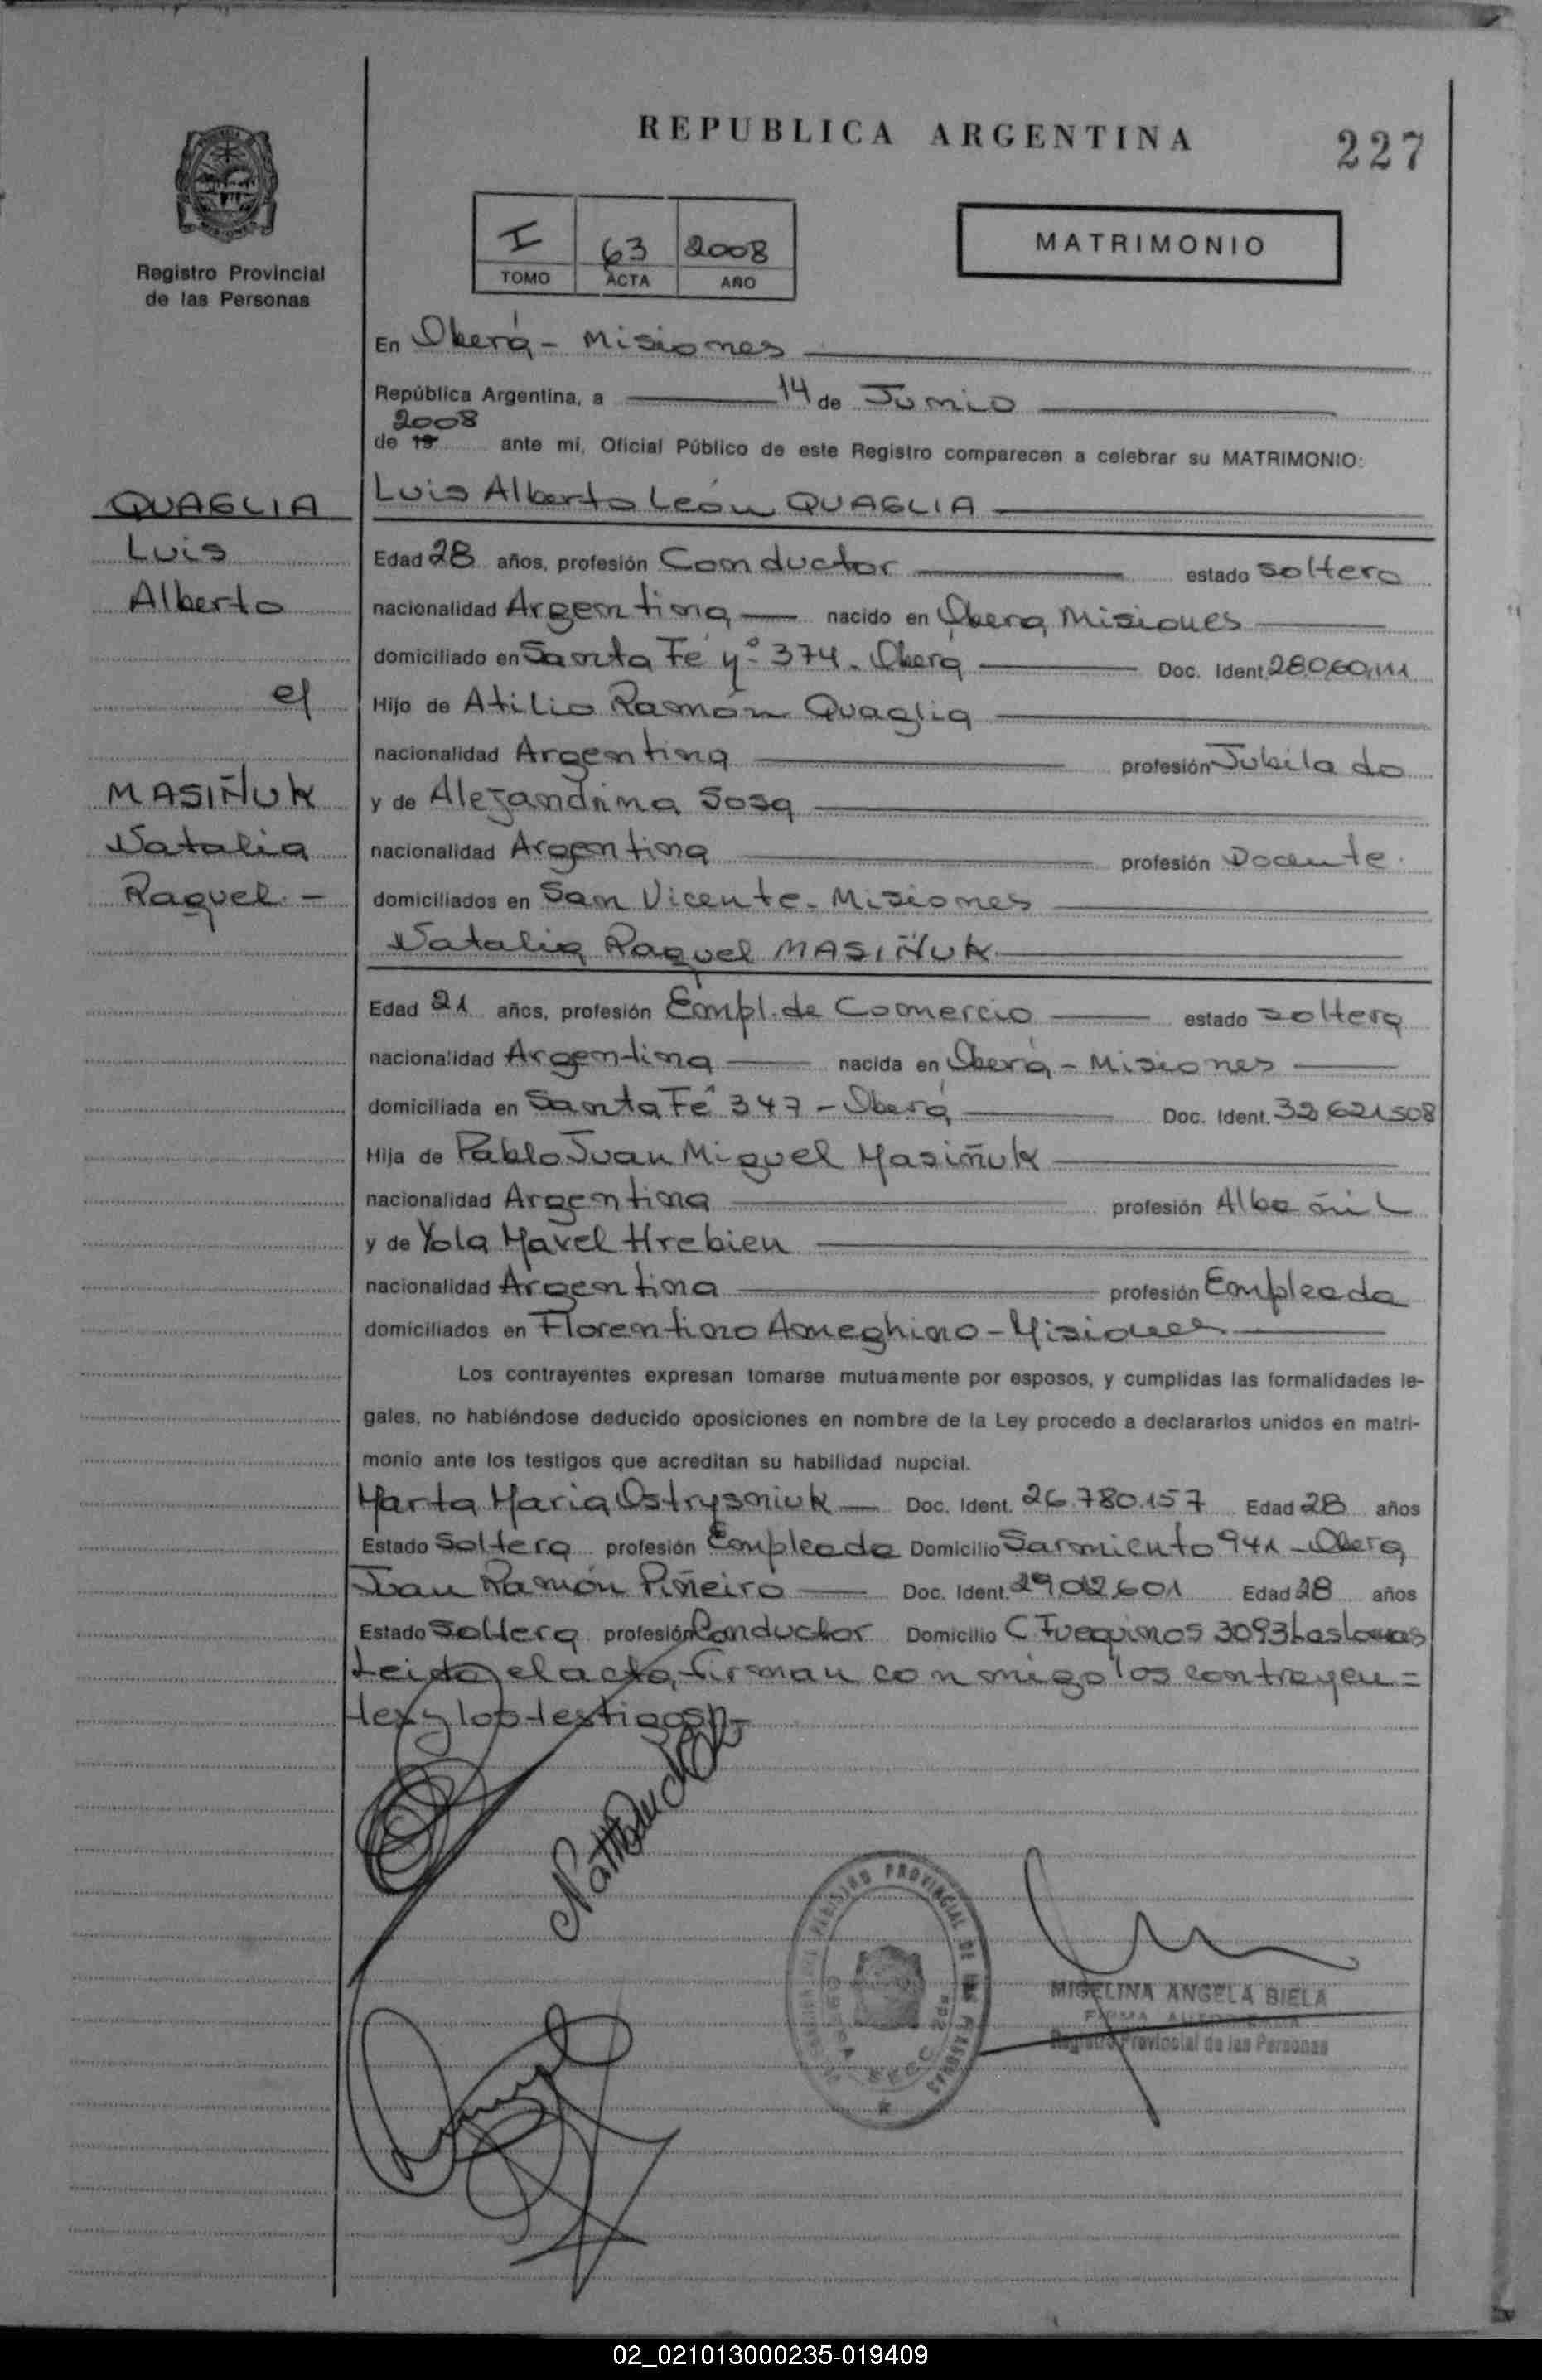 REPUBLICA ARGENTINA
227
Registro Provincial
de las Personas
I 63 2008
TOMO ACTA AÑO
MATRIMONIO
En Oberá - Misiones
República Argentina, a 14 de Junio
2008
de 19 ante mí, Oficial Público de este Registro comparecen a celebrar su MATRIMONIO:
QUAGLIA
Luis
Alberto
c/
MASIÑUK
Natalia
Raquel. -
Luis Alberto León QUAGLIA
Edad 28 años, profesión Conductor estado soltero
nacionalidad Argentina nacido en Oberá Misiones
domiciliado en Santa Fé nº 374. Oberá Doc. Ident. 28.060.111
Hijo de Atilio Ramón Quaglia
nacionalidad Argentina profesión Jubilado
y de Alejandrina Sosa
nacionalidad Argentina profesión Docente.
domiciliados en San Vicente - Misiones
Natalia Raquel MASIÑUK
Edad 21 años, profesión Empl. de Comercio estado soltera
nacionalidad Argentina nacida en Oberá - Misiones
domiciliada en Santa Fé 347 - Oberá Doc. Ident. 32.621.508
Hija de Pablo Juan Miguel Masiñuk
nacionalidad Argentina profesión Albañil
y de Yola Mavel Hrebien
nacionalidad Argentina profesión Empleada
domiciliados en Florentino Ameghino - Misiones
Los contrayentes expresan tomarse mutuamente por esposos, y cumplidas las formalidades le-
gales, no habiéndose deducido oposiciones en nombre de la Ley procedo a declararlos unidos en matri-
monio ante los testigos que acreditan su habilidad nupcial.
Marta Maria Ostrysniuk Doc. Ident. 26.780.157 Edad 28 años
Estado Soltera profesión Empleada Domicilio Sarmiento 941 - Oberá
Juan Ramón Piñeiro Doc. Ident. 29.012.601 Edad 28 años
Estado Soltero profesión Conductor Domicilio C Fueguinos 3093 Las Lomas
Leida el acta, firman conmigo los contrayen=
tes y los testigos.-
REGISTRO PROVINCIAL DE LAS PERSONAS
MIGELINA ANGELA BIELA
FIRMA AUTORIZADA
Registro Provincial de las Personas
02_021013000235-019409